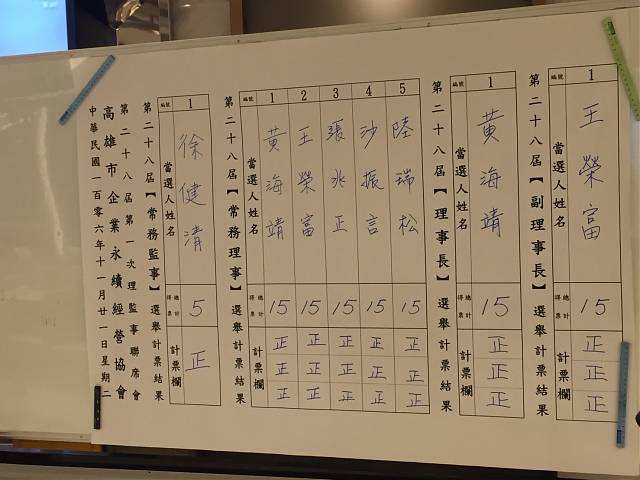 中華民國一百零六年十一月廿一日星期二
高雄市企業永續經營協會
第二十八屆第一次理監事聯席會
第二十八屆【常務監事】選舉計票結果
編號 1
當選人姓名 徐健清
總計得票 5
計票欄 正
第二十八屆【常務理事】選舉計票結果
編號 1 2 3 4 5
當選人姓名 黃海靖 王榮富 張兆正 沙振言 陸瑞松
總計得票 15 15 15 15 15
計票欄 正 正 正 正 正
正 正 正 正 正
正 正 正 正 正
第二十八屆【理事長】選舉計票結果
編號 1
當選人姓名 黃海靖
總計得票 15
計票欄 正
正
正
第二十八屆【副理事長】選舉計票結果
編號 1
當選人姓名 王榮富
總計得票 15
計票欄 正
正
正